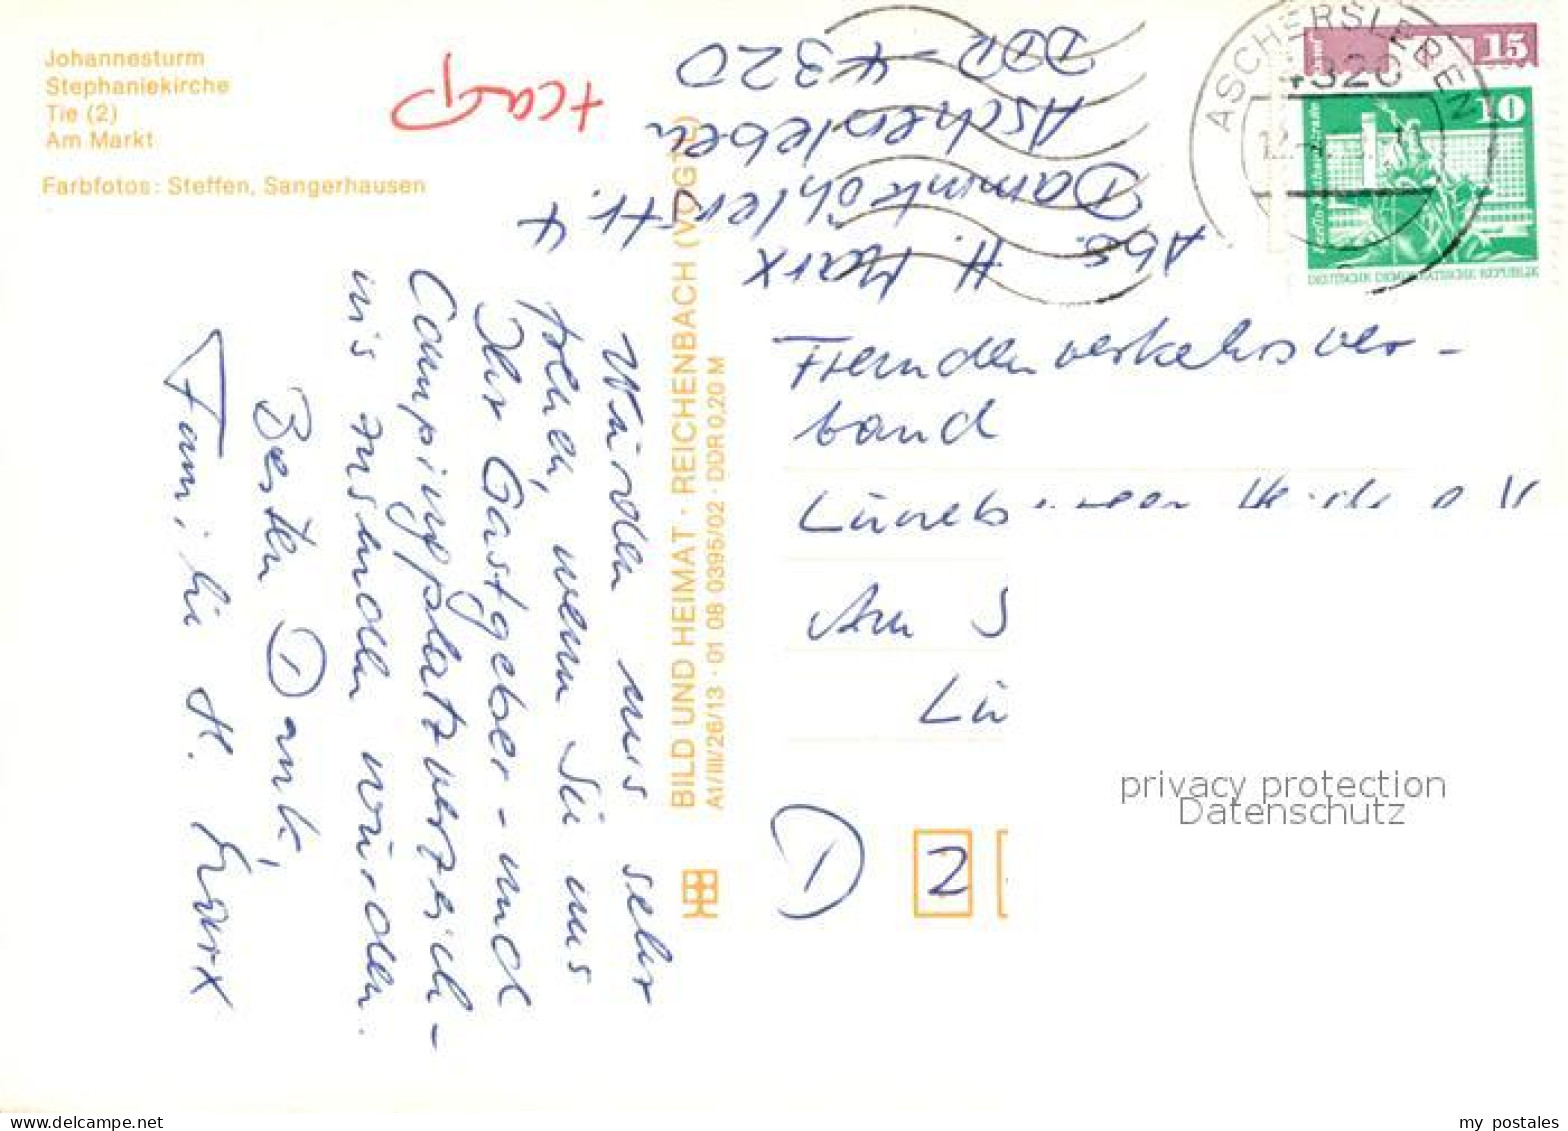 Johannesturm
Stephaniekirche
Tie (2)
Am Markt
Farbfotos: Steffen, Sangerhausen
+camp
Abs. H. Marx
Dammköhlerstr. 4
Aschersleben
DDR - 4320
ASCHERSLEBEN
4320
12
15
10
DEUTSCHE DEMOKRATISCHE REPUBLIK
Würden uns sehr
freuen, wenn Sie uns
Ihr Gastgeber- und
Campingplatzverzeich-
nis zusenden würden.
Besten Dank,
Familie H. Marx
BILD UND HEIMAT · REICHENBACH (VOGTL)
A1/III/26/13 · 01 08 0395/02 · DDR 0,20 M
Fremdenverkehrsver-
band
Lüneburger Heide e.V.
Am S
Lü
D 2
privacy protection
Datenschutz
my postales